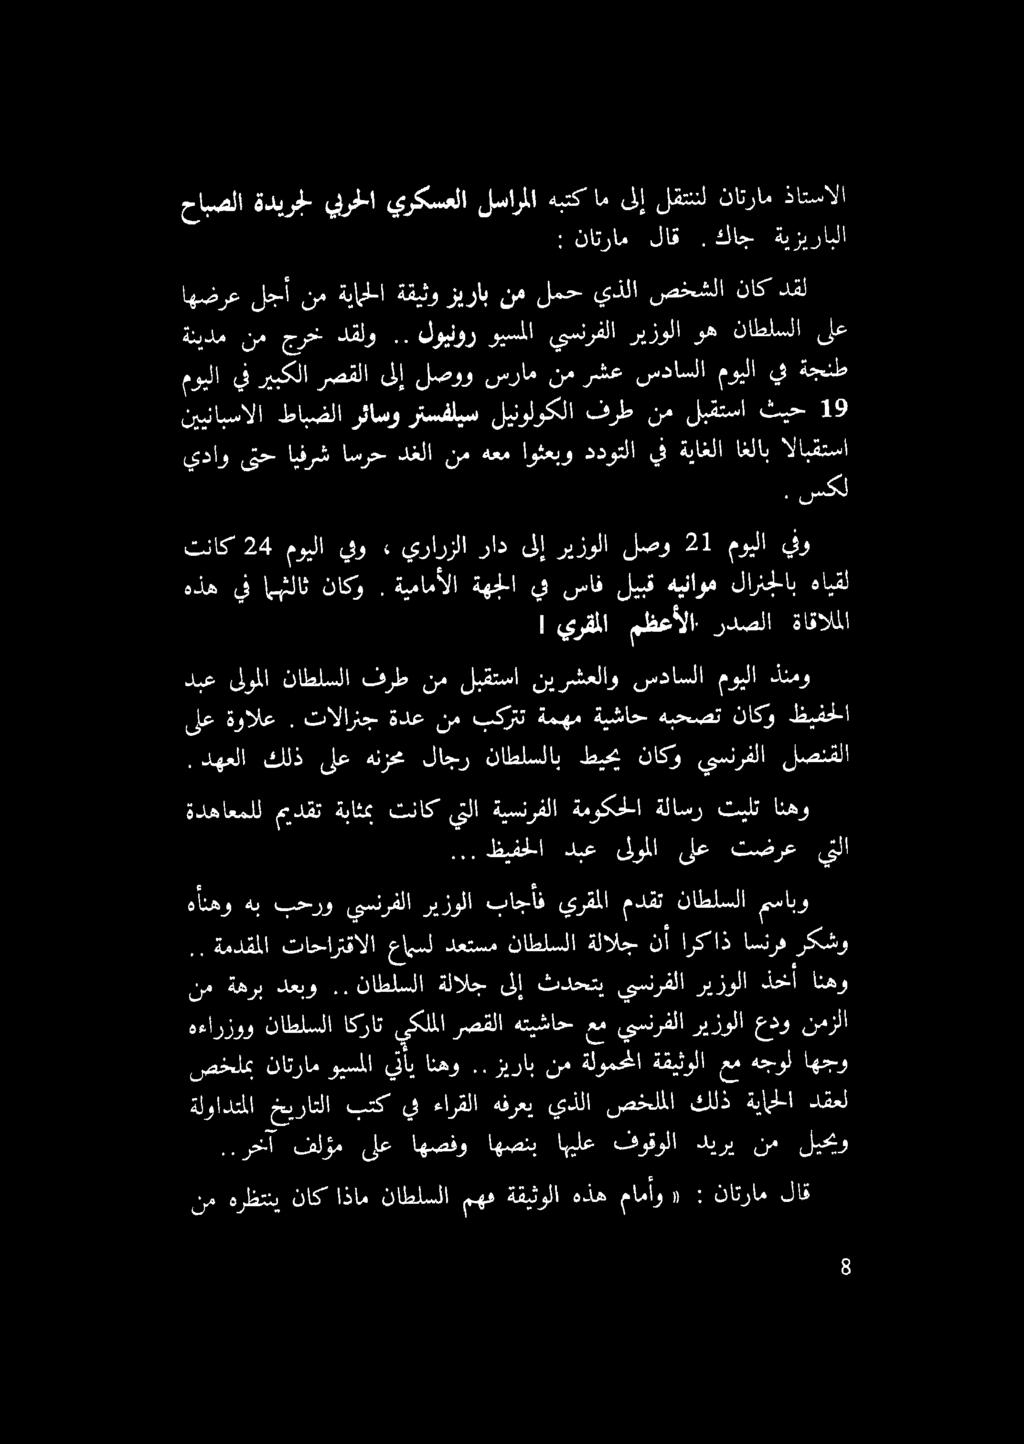 الاستاذ مارتان لننتقل إلى ما كتبه المراسل العسكري الحربي لجريدة الصباح
الباريزية جاك . قال مارتان :
لقد كان الشخص الذي حمل من باريز وثيقة الحماية من أجل عرضها
على السلطان هو الوزير الفرنسي المسيو رونيول .. ولقد خرج من مدينة
طنجة في اليوم السادس عشر من مارس ووصل إلى القصر الكبير في اليوم
19 حيث استقبل من طرف الكولونيل سيلفستر وسائر الضباط الاسبانيين
استقبالا بالغا الغاية في التودد وبعثوا معه من الغد حرسا شرفيا حتى وادي
لكس .
وفي اليوم 21 وصل الوزير إلى دار الزراري ، وفي اليوم 24 كانت
لقياه بالجنرال موانيه قبيل فاس في الجهة الأمامية . وكان ثالثهما في هذه
الملاقاة الصدر الأعظم المقري !
ومنذ اليوم السادس والعشرين استقبل من طرف السلطان المولى عبد
الحفيظ وكان تصحبه حاشية مهمة تتركب من عدة جنرالات . علاوة على
القنصل الفرنسي وكان يحيط بالسلطان رجال مخزنه على ذلك العهد .
وهنا تليت رسالة الحكومة الفرنسية التي كانت بمثابة تقديم للمعاهدة
التي عرضت على المولى عبد الحفيظ ...
وباسم السلطان تقدم المقري فأجاب الوزير الفرنسي ورحب به وهنأه
وشكر فرنسا ذاكرا أن جلالة السلطان مستعد لسماع الاقتراحات المقدمة ..
وهنا أخذ الوزير الفرنسي يتحدث إلى جلالة السلطان .. وبعد برهة من
الزمن ودع الوزير الفرنسي مع حاشيته القصر الملكي تاركا السلطان ووزراءه
وجها لوجه مع الوثيقة المحمولة من باريز .. وهنا يأتي المسيو مارتان بملخص
لعقد الحماية ذلك الملخص الذي يعرفه القراء في كتب التاريخ المتداولة
ويحيل من يريد الوقوف عليها بنصها وفصها على مؤلف آخر ..
قال مارتان : « وأمام هذه الوثيقة فهم السلطان ماذا كان ينتظره من
8